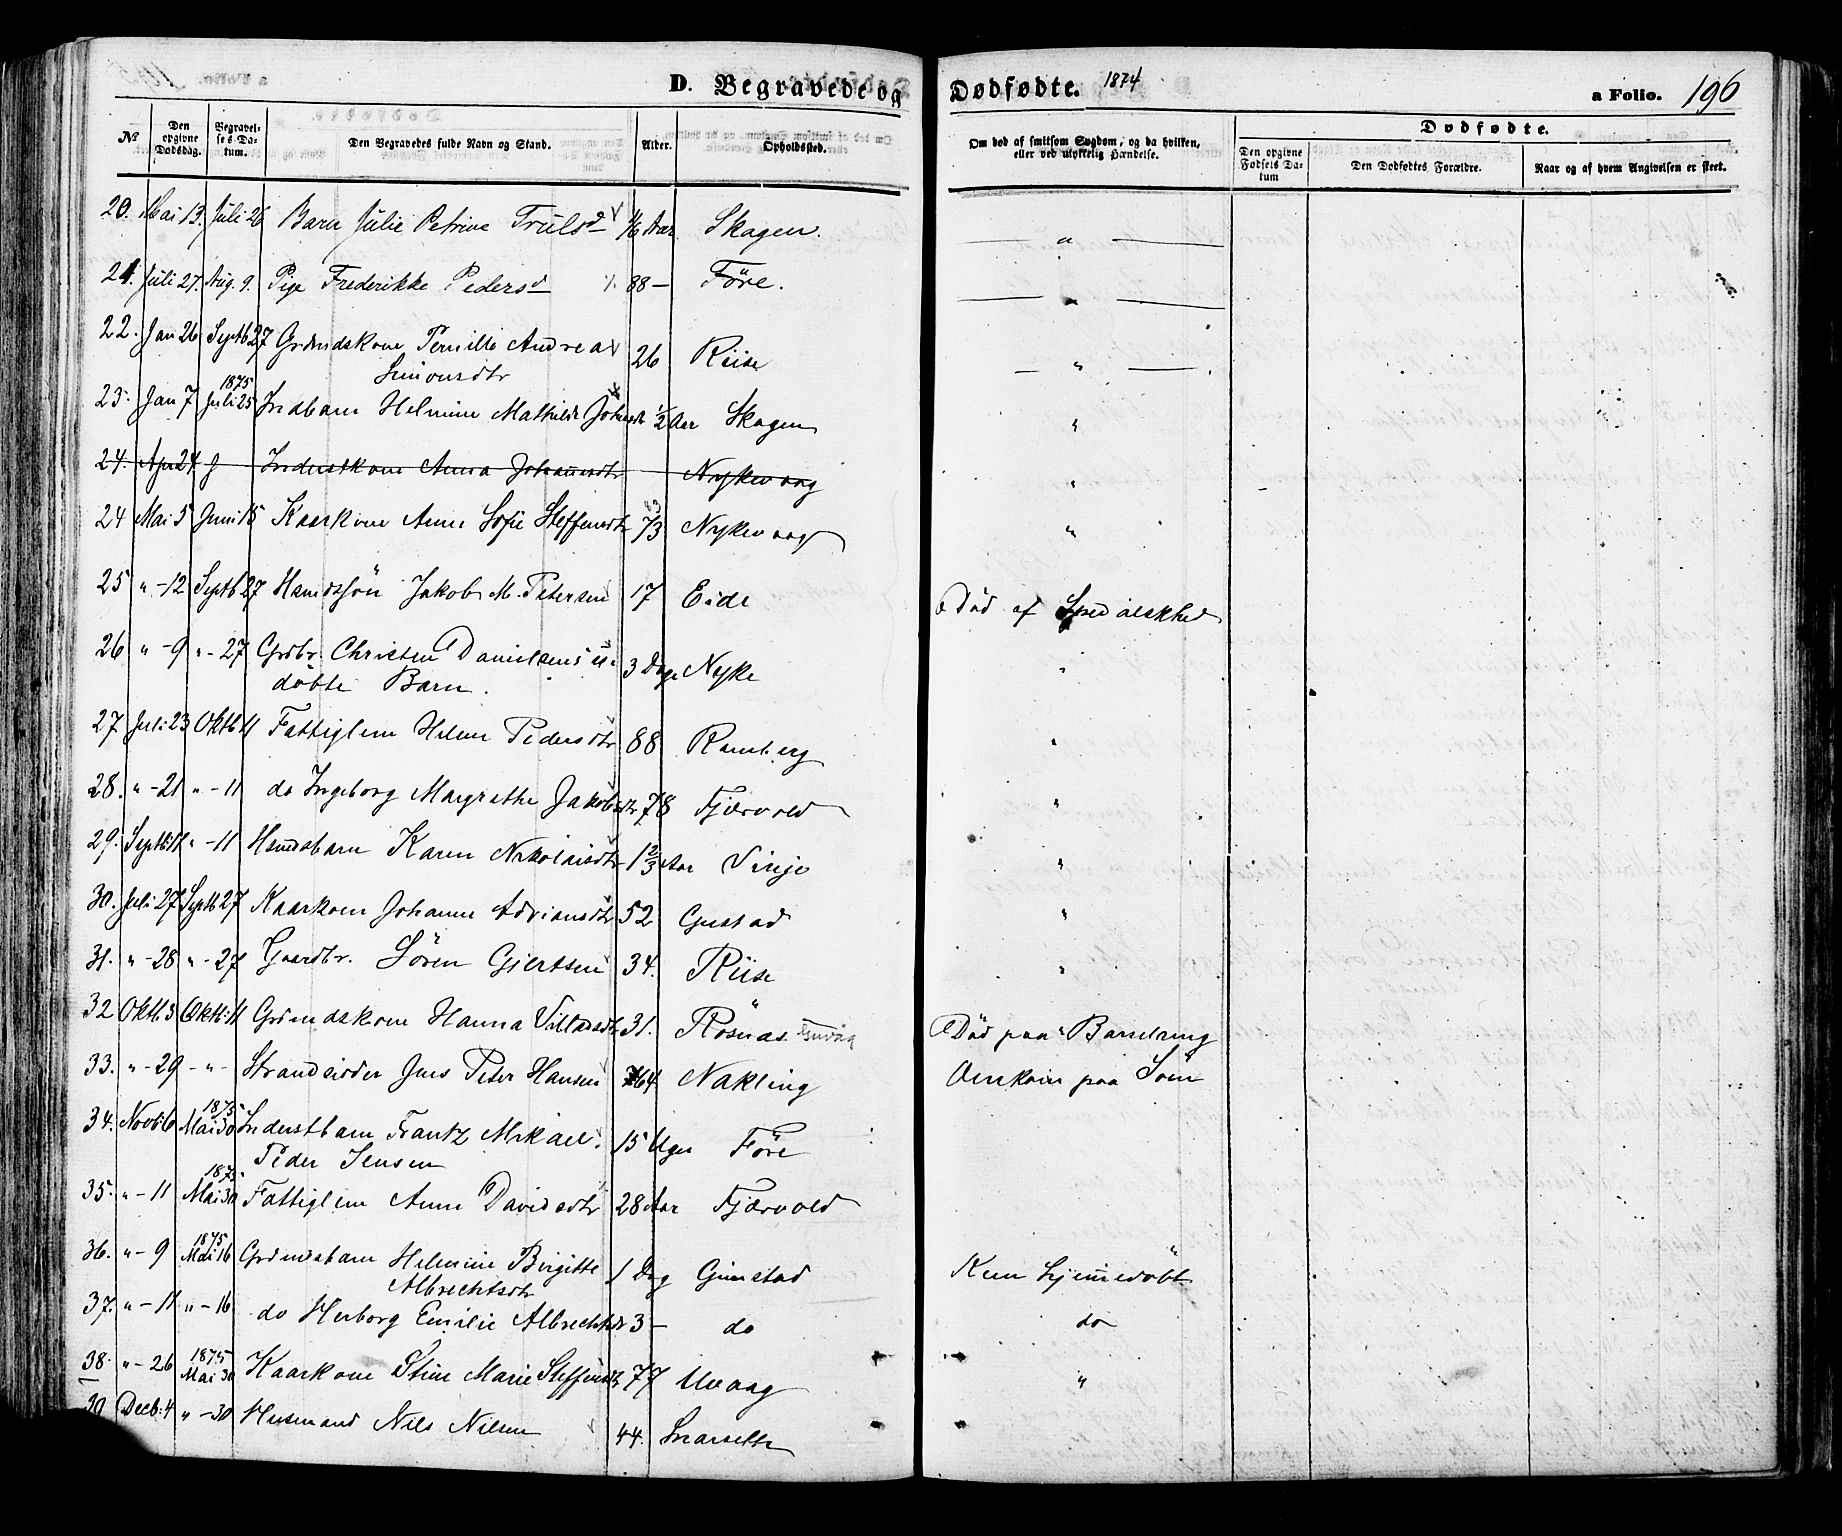 D. Begravede og Dødfødte. 1874 a Folio. 196
No Den opgivne Dødsdag. Begravelses-Datum. Den Begravedes fulde Navn og Stand. Alder. Opholdssted. Om død af smitsom Sygdom, og da hvilken, eller ved ulykkelig Hændelse. Dødfødte.
Den opgivne Fødsels Datum Den Dødfødtes Forældre. Naar og af hvem Angivelsen er skeet.
20. Mai 13. Juli 26 Barn Julie Petrine Trulsd Aar Skagen. — " —
21. Juli 27. Aug. 9. Pige Frederikke Pedersd 88 — Före. — " —
22. Jan 26 Septb 27 Grdmdskone Pernille Andrea 26 Riise — " —
Simonsdtr
23. Jan 7 1875 Juli 25 Indbarn Helmine Mathilde Johnsdtr 1/2 Aar Skagen "
24. Apr 24 J Inderstkone Anna Johannsdtr Nykevaag "
24 Mai 5 Juni 15 Kaarkone Anne Sofie Steffensdtr 73 Nykevaag "
25 " - 12 Septb 27 Hsmdssön Jakob M. Petersen 17 Eide Död af Spedalskhed
26 " - 9 " - 27 Grdbr. Christen Danielsens u- 3 Dage Nyke "
döbte Barn.
27 Juli 23 Oktb 11 Fattiglem Helene Pedersdtr 88 Ramberg "
28. " - 21 " - 11 do Ingeborg Margrethe Jakobsdtr 78 Fjærvold "
29. Septb: 17 " - 11 Hsmdsbarn Karen Nikolaisdtr 1 2/3 Aar Vinje "
30. Juli 27 Septb 27 Kaarkone Johanna Adriansdtr 52 Gustad "
31. " - 28 " - 27 Gaardbr. Sören Gjertsen 34. Riise "
32 Oktb 3 Oktb: 11 Grdmdskone Hanna Villadsdtr 31. Rösnæs. Död paa Barselseng
33. " - 29 - " - Strandsidder Jens Peter Hansen 64 Nakling Omkom paa Söen
34. Novb: 6 1875 Mai 30 Inderstbarn Frantz Mikael 15 Uger Före
Peder Jensen
35. " - 11 1875 Mai 30 Fattiglem Anne Davidsdtr 28 Aar Fjærvold
36. " - 9 1875 Mai 16 Grdmdsbarn Helmine Birgitte 1 Dag Gimstad Kun hjemmedöbt
Albrechtsdtr
37. " - 11 " - 16 do Herborg Emilie Albrechtsdtr 3 — do do
38. " - 26 1875 Mai 30 Kaarkone Stine Marie Steffensdtr 77 Uvaag "
39 Decb: 4 " - 30 Husmand Nils Nilsen 44. Snarsettr